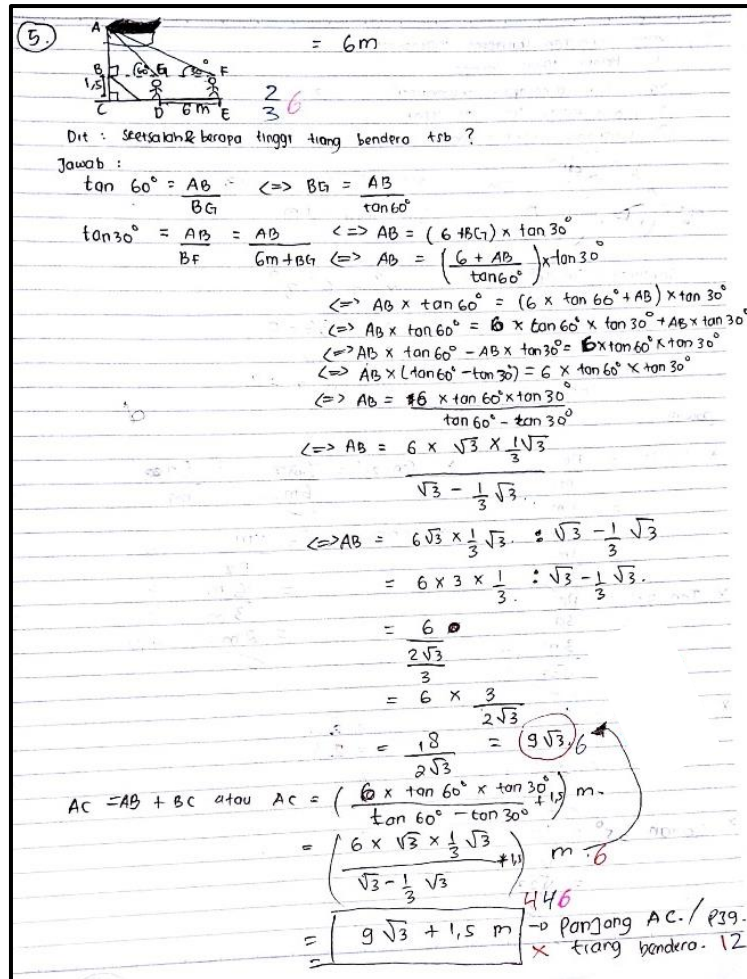 5.
A
= 6m
B 60° G 30° F
1,5
C D 6m E
2 6
3
Dit : Seetsalah& berapa tinggi tiang bendera tsb ?
Jawab :
tan 60° = AB/BG <=> BG = AB/tan60°
tan30° = AB/BF = AB/6m+BG <=> AB = (6+BG) x tan 30°
<=> AB = (6 + AB/tan60°) x tan 30°
<=> AB x tan 60° = (6 x tan 60° + AB) x tan 30°
<=> AB x tan 60° = 6 x tan 60° x tan 30° + AB x tan 30°
<=> AB x tan 60° - AB x tan 30° = 6 x tan 60° x tan 30°
<=> AB x (tan60° - tan 30°) = 6 x tan 60° x tan 30°
<=> AB = 6 x tan 60° x tan 30°/tan 60° - tan 30°
<=> AB = 6 x √3 x 1/3√3
√3 - 1/3 √3.
<=> AB = 6√3 x 1/3 √3. : √3 - 1/3 √3
= 6 x 3 x 1/3. : √3 - 1/3 √3.
= 6
2√3
3
= 6 x 3/2√3
= 18/2√3 = 9√3. 6
AC = AB + BC atau AC = (6 x tan 60° x tan 30°/tan 60° - tan 30° + 1,5) m.
= (6 x √3 x 1/3 √3/√3 - 1/3 √3 + 1,5) m. 6
446
= 9√3 + 1,5 m → panjang AC. / P39.
x tiang bendera. 12